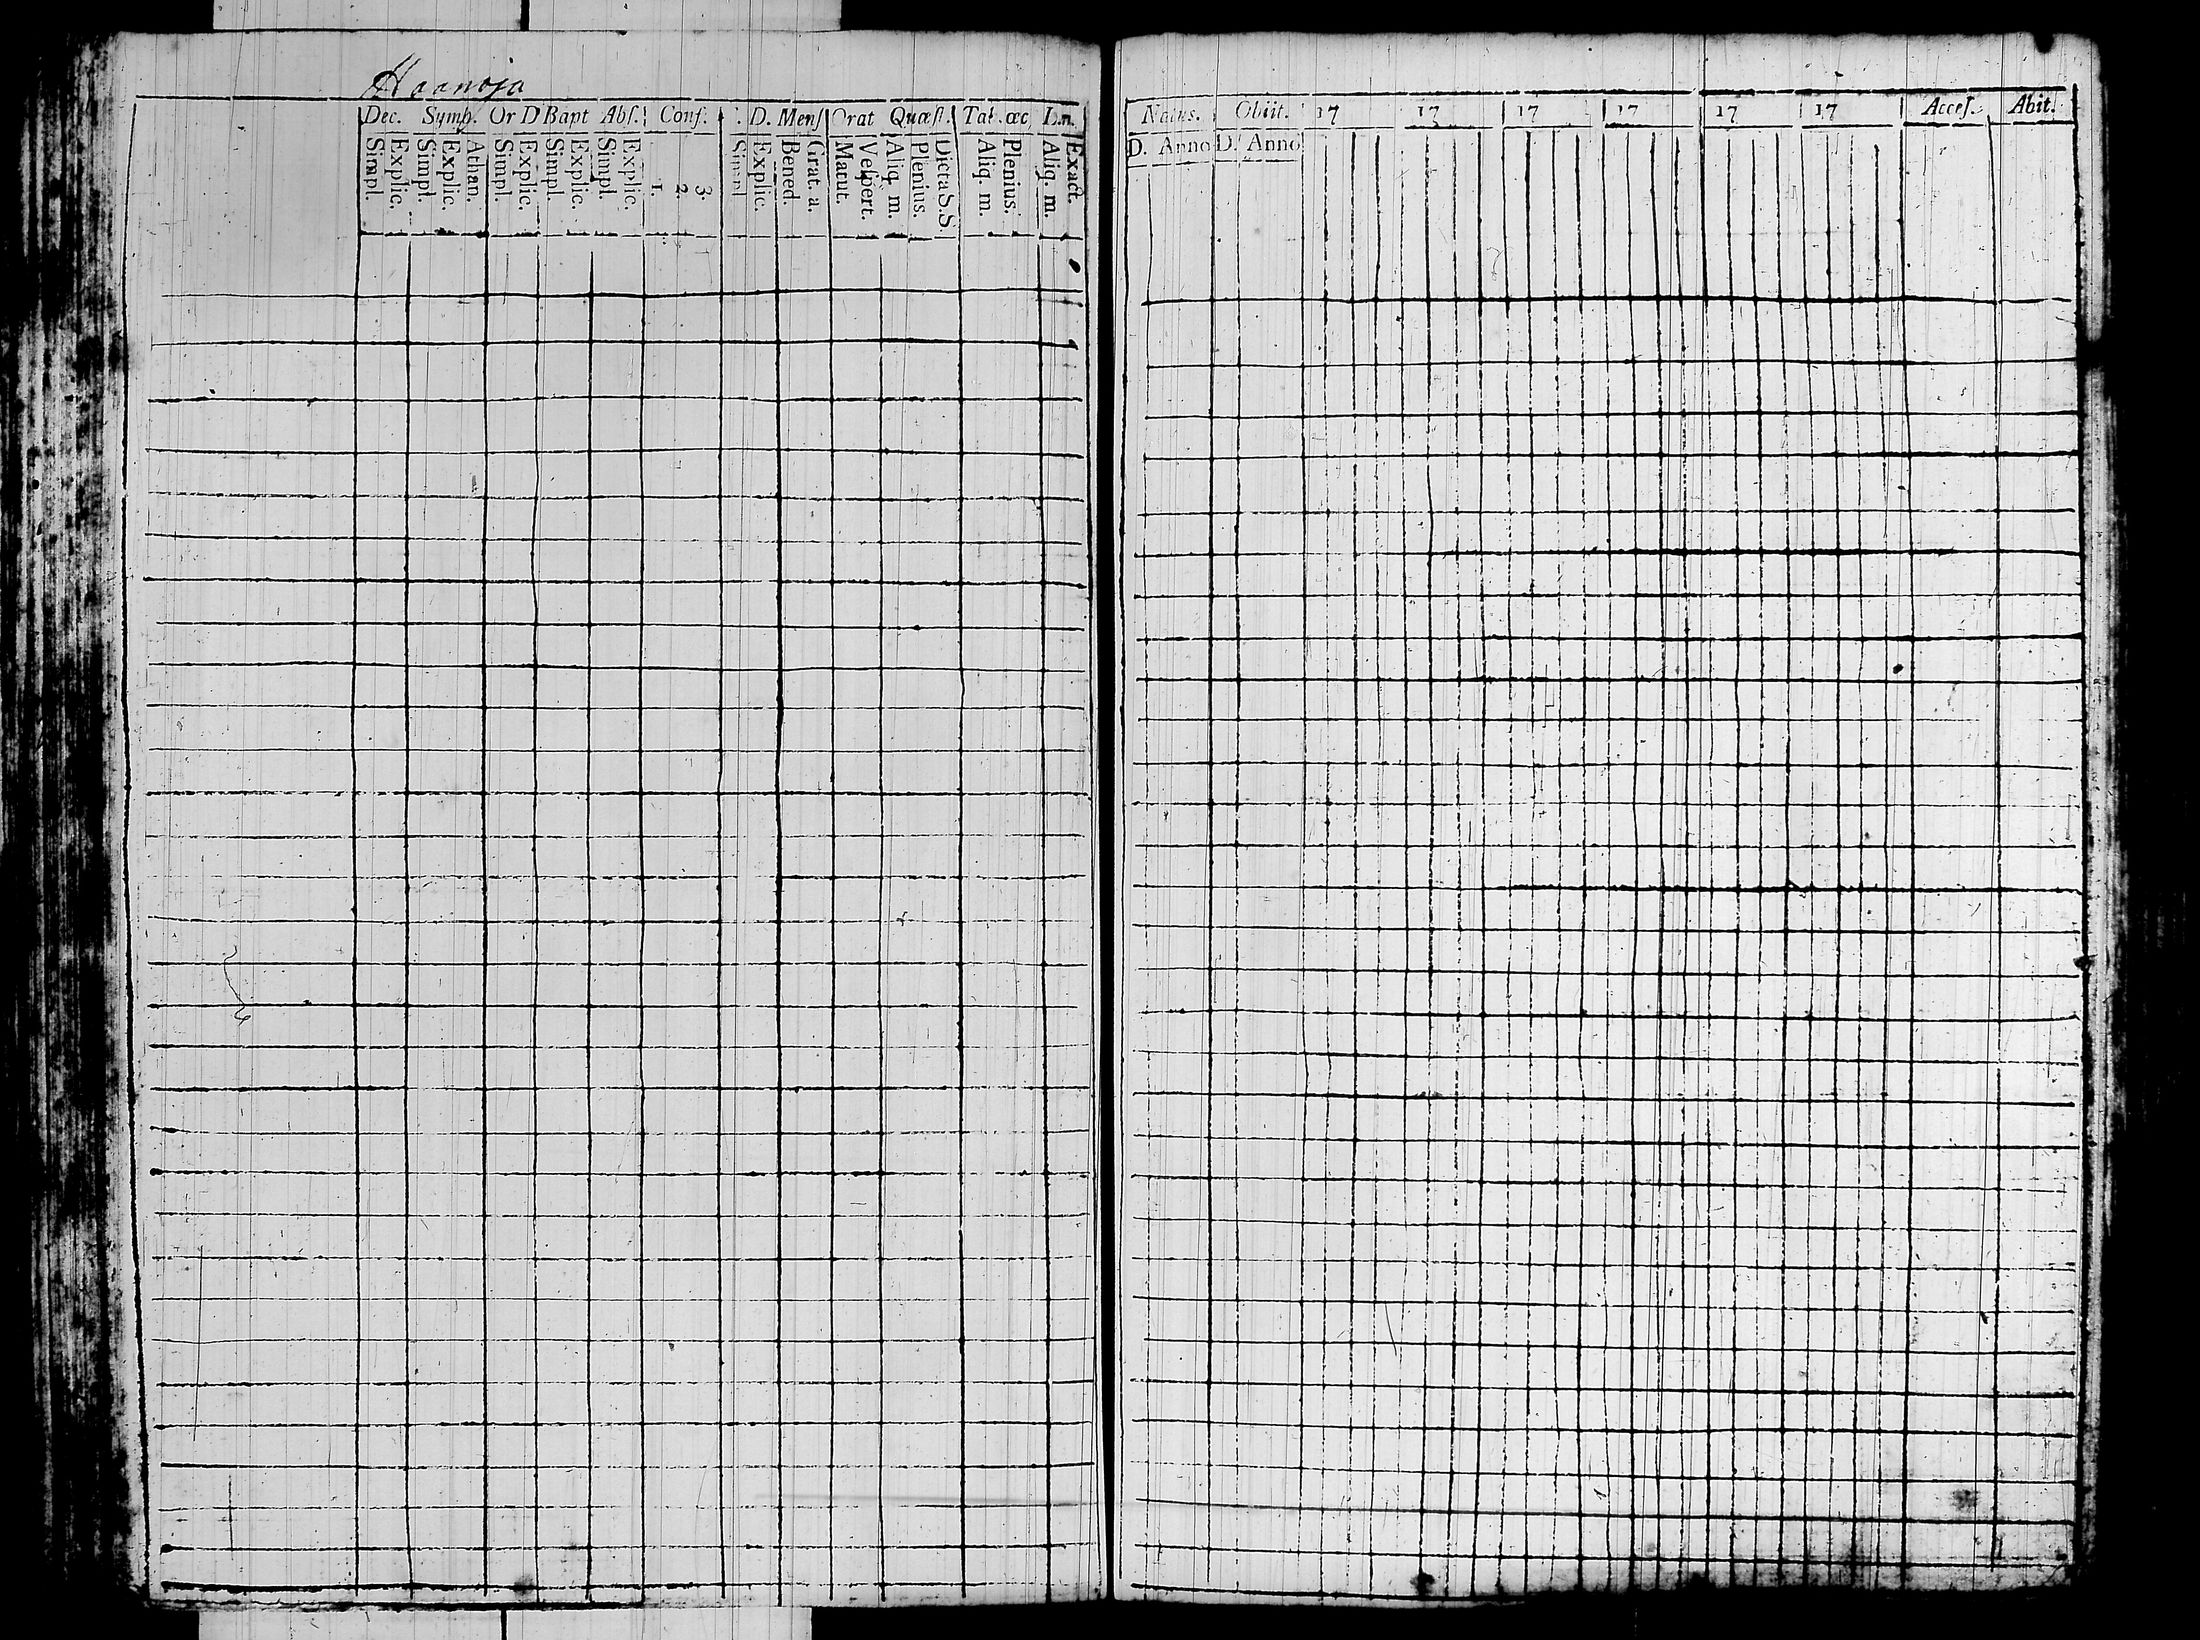 Haanoja
Dec. Symb. Or D Bapt Abs. Conf. D. Mens Orat Quæst. Tab. œc L.n.
Simpl. Explic. Simpl. Explic. Athan. Simpl. Explic. Simpl. Explic. Simpl. Explic. 1. 2. 3. Simpl Explic. Bened. Grat. a. Matut. Vespert. Aliq. m. Plenius. Dicta S. S. Aliq. m. Plenius. Aliq. m. Exact.
Natus. Obiit. 17 17 17 17 17 17 Acces. Abit.
D. Anno D. Anno